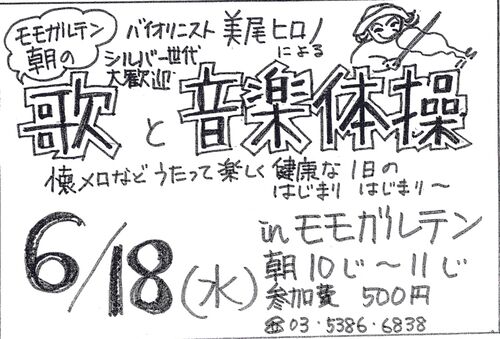 モモガルテン
朝の
バイオリニスト 美尾ヒロノ
による
シルバー世代
大歓迎
歌と音楽体操
懐メロなどうたって楽しく健康な1日の
はじまり はじまり〜
6/18(水)
inモモガルテン
朝10じ〜11じ
参加費 500円
☎03・5386・6838